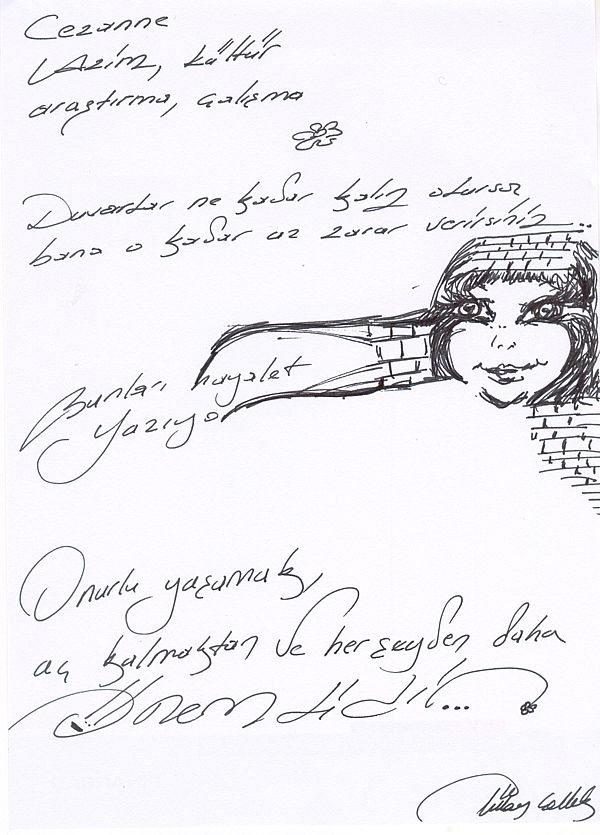 Cezanne
Azim, kültür
araştırma, çalışma
Duvarlar ne kadar kalın olursa
bana o kadar az zarar verirsiniz...
Bunları hayalet
yazıyor
Onurlu yaşamak,
aç kalmaktan ve herşeyden daha
Önemlidir...